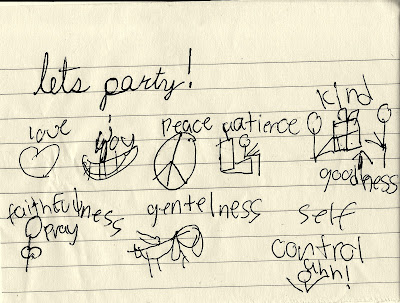 lets party!
love joy peace patience kind
goodness
faithfulness gentelness self
pray control
shh!